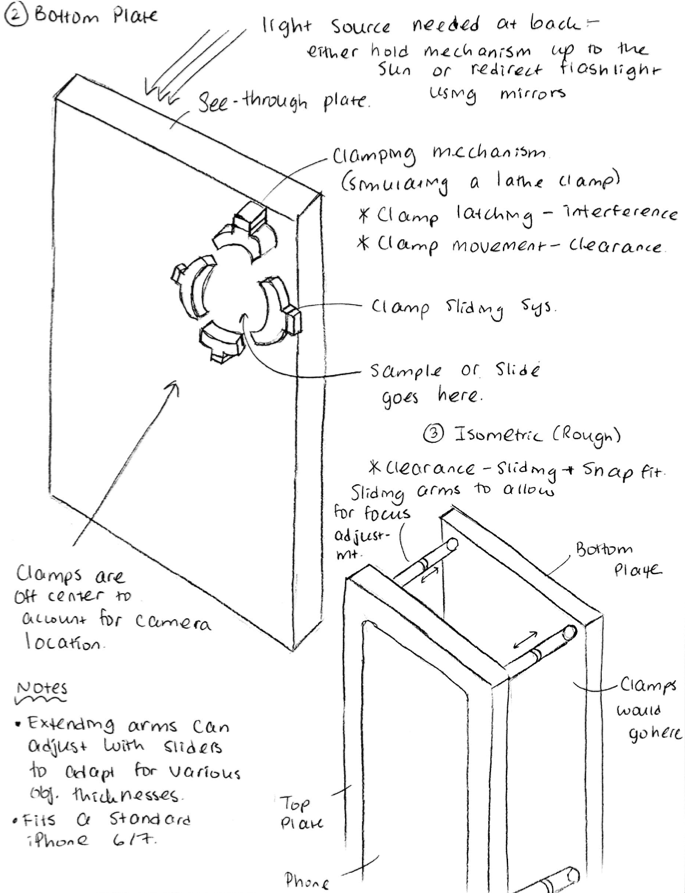 ② Bottom Plate
light source needed at back -
either hold mechanism up to the
sun or redirect flashlight
using mirrors
See-through plate.
Clamping mechanism
(simulating a lathe clamp)
* Clamp latching - interference
* Clamp movement - clearance.
Clamp Sliding Sys.
Sample or Slide
goes here.
Clamps are
off center to
account for camera
location.
③ Isometric (Rough)
* Clearance - Sliding + Snap fit.
Sliding arms to allow
for focus
adjust-
mt.
Bottom
Plate
Clamps
would
go here
Top
Plate
Phone
Notes
• Extending arms can
adjust with sliders
to adapt for various
obj. thicknesses.
• Fits a standard
iPhone 6/7.